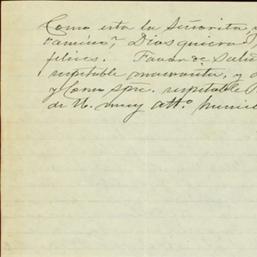 Como esta la Señorita,
camino? Dios quiera
felices. Favor de Salu
respetable mamasita, y
y Como spre. respetable
de U. muy atto.